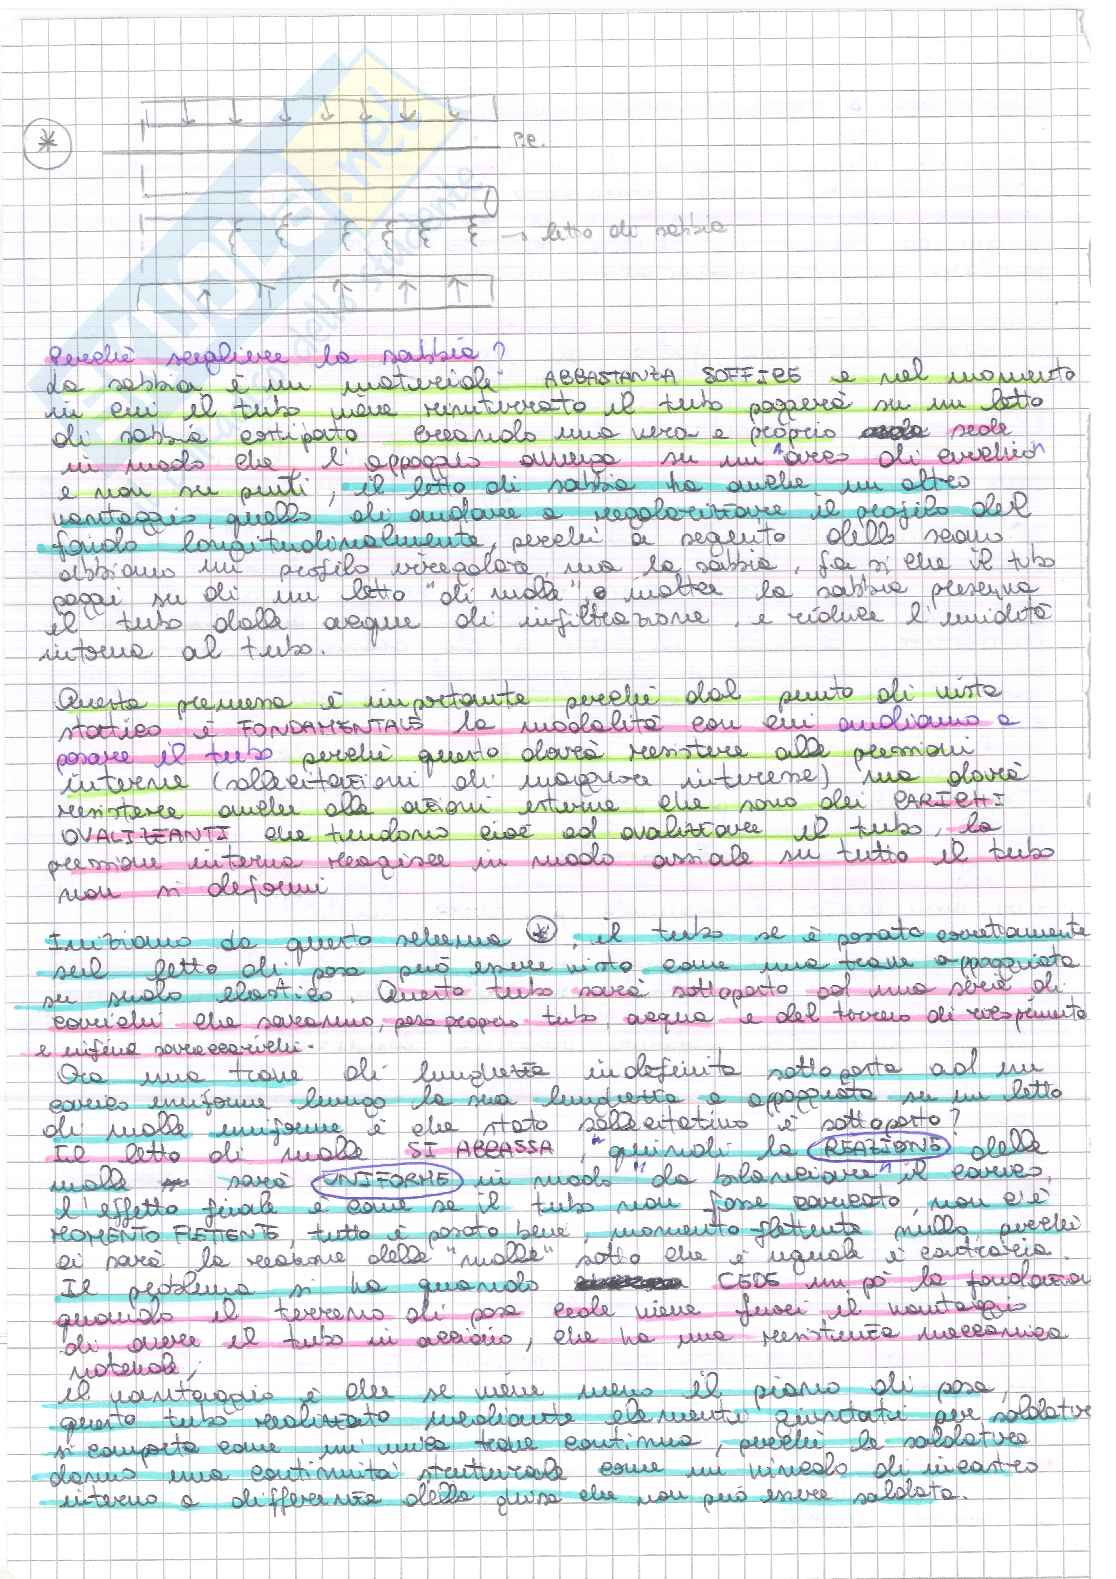 * P.C.
→ letto di sabbia
Perché scegliere la sabbia?
La sabbia è un materiale ABBASTANZA SOFFICE e nel momento
in cui il tubo viene rinterrato il tubo poggerà su un letto
di sabbia costipato creando una vera e proprio sede
in modo che l'appoggio avvenga su un "arco di cerchio"
e non su punti, il letto di sabbia ha anche un altro
vantaggio, quello di andare a regolarizzare il profilo del
fondo longitudinalmente, perché a seguito dello scavo
abbiamo un profilo irregolare, ma la sabbia, fa si che il tubo
poggi su di un letto "di molle", e inoltre la sabbia preserva
il tubo dalle acque di infiltrazione, e riduce l'umidità
intorno al tubo.
Questa premessa è importante perché dal punto di vista
statico è FONDAMENTALE la modalità con cui andiamo a
posare il tubo perché questo dovrà resistere alle pressioni
interne (sollecitazioni di maggiore interesse) ma dovrà
resistere anche alle azioni esterne che sono dei CARICHI
OVALIZZANTI che tendono cioè ad ovalizzare il tubo, la
pressione interna reagisce in modo assiale su tutto il tubo
non si deformi
Iniziamo da questo schema *, il tubo se è posato correttamente
sul letto di posa può essere visto come una trave appoggiata
su suolo elastico. Questo tubo sarà sottoposto ad una serie di
carichi che saranno, peso proprio tubo, acqua e del terreno di riempimento
e infine sovraccarichi.
Ora una trave di lunghezza indefinita sottoposta ad un
carico uniforme lungo la sua lunghezza e appoggiata su un letto
di molle uniforme è che stato sollecitativo è sottoposto?
Il letto di molle SI ABBASSA, quindi la REAZIONE delle
molle sarà UNIFORME in modo "da bilanciare" il carico,
l'effetto finale è come se il tubo non fosse caricato, non c'è
MOMENTO FLETTENTE, tutto è posato bene, momento flettente nullo, perché
ci sarà la reazione delle "molle" sotto che è uguale e contraria.
Il problema si ha quando CEDE un pò la fondazione
quando il terreno di posa cede viene fuori il vantaggio
di avere il tubo in acciaio, che ha una resistenza meccanica
notevole,
il vantaggio è che se viene meno il piano di posa,
questo tubo realizzato mediante elementi giuntati per saldature
si comporta come un unica trave continua, perché le saldature
danno una continuità strutturale come un vincolo di incastro
interno a differenza della ghisa che non può essere saldata.